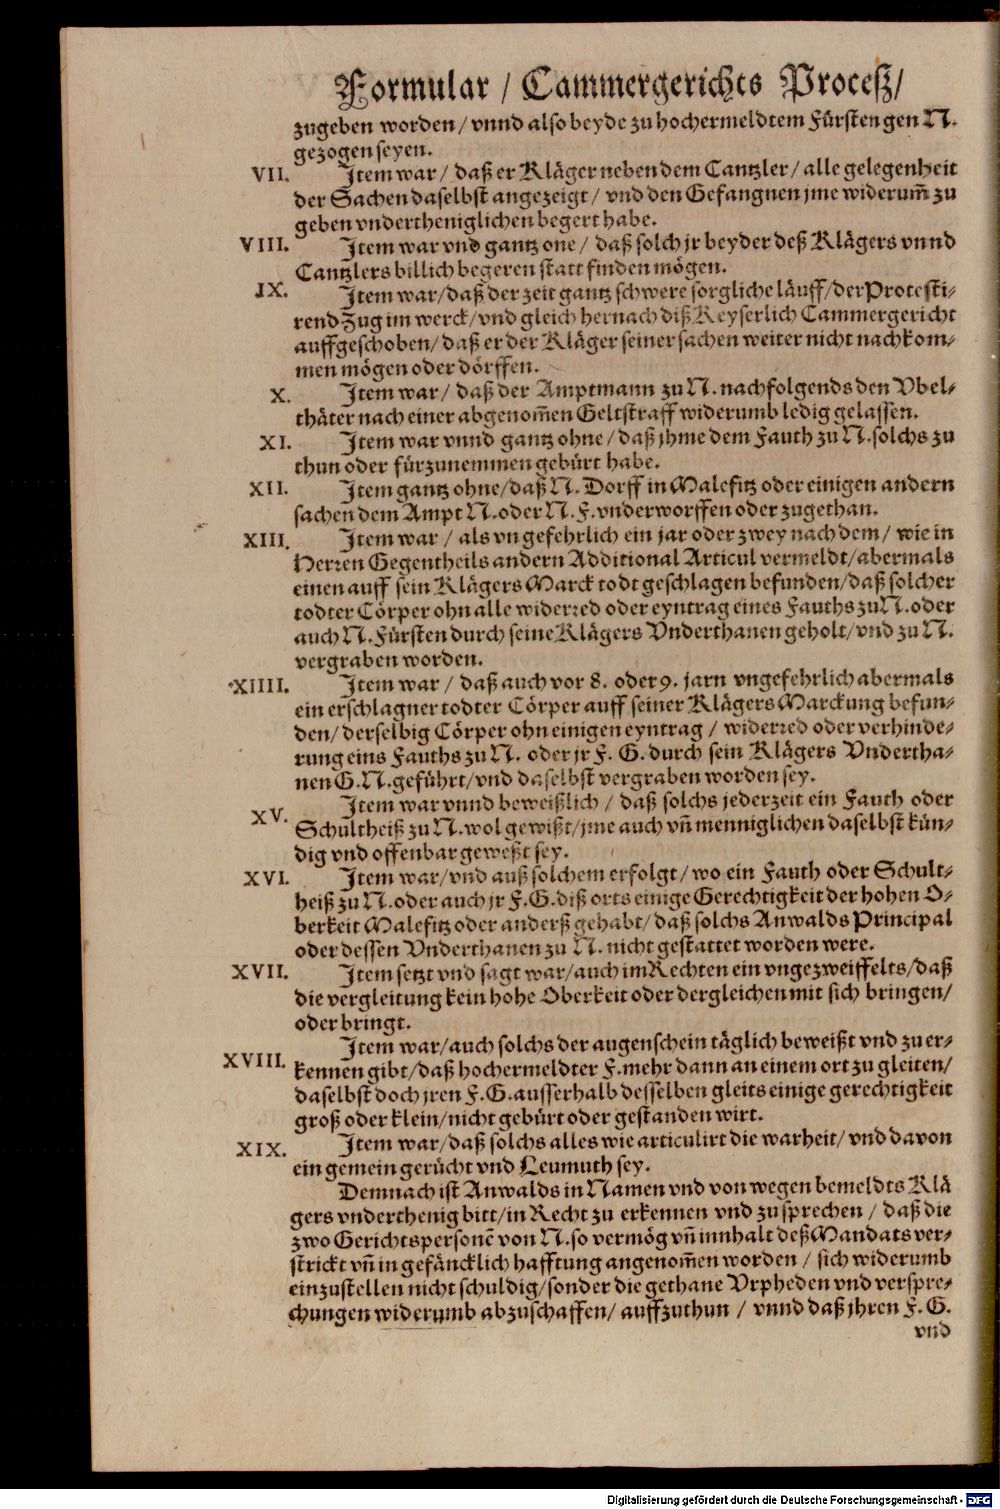 Formular / Cammergerichts Proceß/
zugeben worden/ vnnd also beyde zu hochermeldtem Fürsten gen N.
gezogen seyen.
VII. Item war/ daß er Kläger neben dem Cantzler/ alle gelegenheit
der Sachen daselbst angezeigt/ vnd den Gefangnen jme widerum̃ zu
geben vndertheniglichen begert habe.
VIII. Item war vnd gantz one/ daß solch jr beyder deß Klägers vnnd
Cantzlers billich begeren statt finden mögen.
IX. Item war/daß der zeit gantz schwere sorgliche läuff/der Protesti-
rend Zug im werck/vnd gleich hernach diß Keyserlich Cammergericht
auffgeschoben/daß er der Kläger seiner sachen weiter nicht nachkom-
men mögen oder dörffen.
X. Item war/ daß der Amptmann zu N. nachfolgends den Vbel-
thäter nach einer abgenom̃en Geltstraff widerumb ledig gelassen.
XI. Item war vnnd gantz ohne/daß jhme dem Fauth zu N. solchs zu
thun oder fürzunemmen gebürt habe.
XII. Item gantz ohne/daß N. Dorff in Malefitz oder einigen andern
sachen dem Ampt N. oder N. F. vnderworffen oder zugethan.
XIII. Item war/ als vngefehrlich ein jar oder zwey nach dem/ wie in
Herren Gegentheils andern Additional Articul vermeldt/abermals
einen auff sein Klägers Marck todt geschlagen befunden/daß solcher
todter Cörper ohn alle widerred oder eyntrag eines Fauths zu N. oder
auch N. Fürsten durch seine Klägers Vnderthanen geholt/vnd zu N.
vergraben worden.
XIIII. Item war/ daß auch vor 8. oder 9. jarn vngefehrlich abermals
ein erschlagner todter Cörper auff seiner Klägers Marckung befun-
den/ derselbig Cörper ohn einigen eyntrag/ widerred oder verhinde-
rung eins Fauths zu N. oder jr F. G. durch sein Klägers Vndertha-
nen G. N. geführt/vnd daselbst vergraben worden sey.
XV. Item war vnnd beweißlich/ daß solchs jederzeit ein Fauth oder
Schultheiß zu N. wol gewißt/jme auch vñ menniglichen daselbst kün-
dig vnd offenbar geweßt sey.
XVI. Item war/vnd auß solchem erfolgt/wo ein Fauth oder Schult-
heiß zu N. oder auch jr F. G. diß orts einige Gerechtigkeit der hohen O-
berkeit Malefitz oder anderß gehabt/daß solchs Anwalds Principal
oder dessen Vnderthanen zu N. nicht gestattet worden were.
XVII. Item setzt vnd sagt war/auch im Rechten ein vngezweiffelts/daß
die vergleitung kein hohe Oberkeit oder dergleichen mit sich bringen/
oder bringt.
XVIII. Item war/auch solchs der augenschein täglich beweißt vnd zu er-
kennen gibt/daß hochermeldter F. mehr dann an einem ort zu gleiten/
daselbst doch jren F. G. ausserhalb desselben gleits einige gerechtigkeit
groß oder klein/nicht gebürt oder gestanden wirt.
XIX. Item war/daß solchs alles wie articulirt die warheit/vnd davon
ein gemein gerücht vnd Leumuth sey.
Demnach ist Anwalds in Namen vnd von wegen bemeldts Klä
gers vnderthenig bitt/in Recht zu erkennen vnd zu sprechen/ daß die
zwo Gerichtspersonẽ von N. so vermög vñ innhalt deß Mandats ver-
strickt vñ in gefäncklich hafftung angenom̃en worden/ sich widerumb
einzustellen nicht schuldig/sonder die gethane Vrpheden vnd verspre-
chungen widerumb abzuschaffen/ auffzuthun/ vnnd daß jhren F. G.
vnd
Digitalisierung gefördert durch die Deutsche Forschungsgemeinschaft - DFG